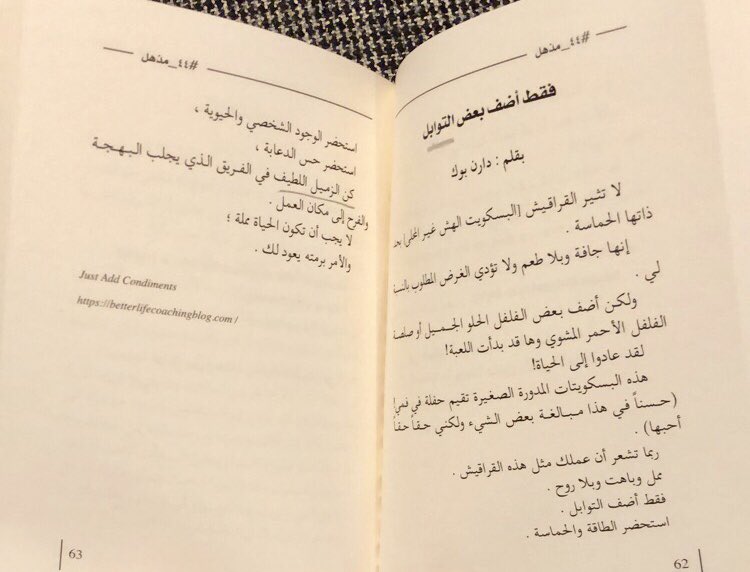 #٤٤_مذهل
فقط أضف بعض التوابل
بقلم : دارن بوك
لا تثير القراقيش [البسكويت الهش غير المحلى] بحد
ذاتها الحماسة .
إنها جافة وبلا طعم ولا تؤدي الغرض المطلوب بالنسبة
لي .
ولكن أضف بعض الفلفل الحلو الجميل أو صلصة
الفلفل الأحمر المشوي وها قد بدأت اللعبة!
لقد عادوا إلى الحياة!
هذه البسكويتات المدورة الصغيرة تقيم حفلة في فمي!
(حسناً في هذا مبالغة بعض الشيء ولكني حقاً حقاً
أحبها) .
ربما تشعر أن عملك مثل هذه القراقيش .
ممل وباهت وبلا روح .
فقط أضف التوابل .
استحضر الطاقة والحماسة .
62
#٤٤_مذهل
استحضر الوجود الشخصي والحيوية ،
استحضر حس الدعابة ،
كن الزميل اللطيف في الفريق الذي يجلب البهجة
والفرح إلى مكان العمل .
لا يجب أن تكون الحياة مملة ؛
والأمر برمته يعود لك .
Just Add Condiments
https://betterlifecoachingblog.com /
63